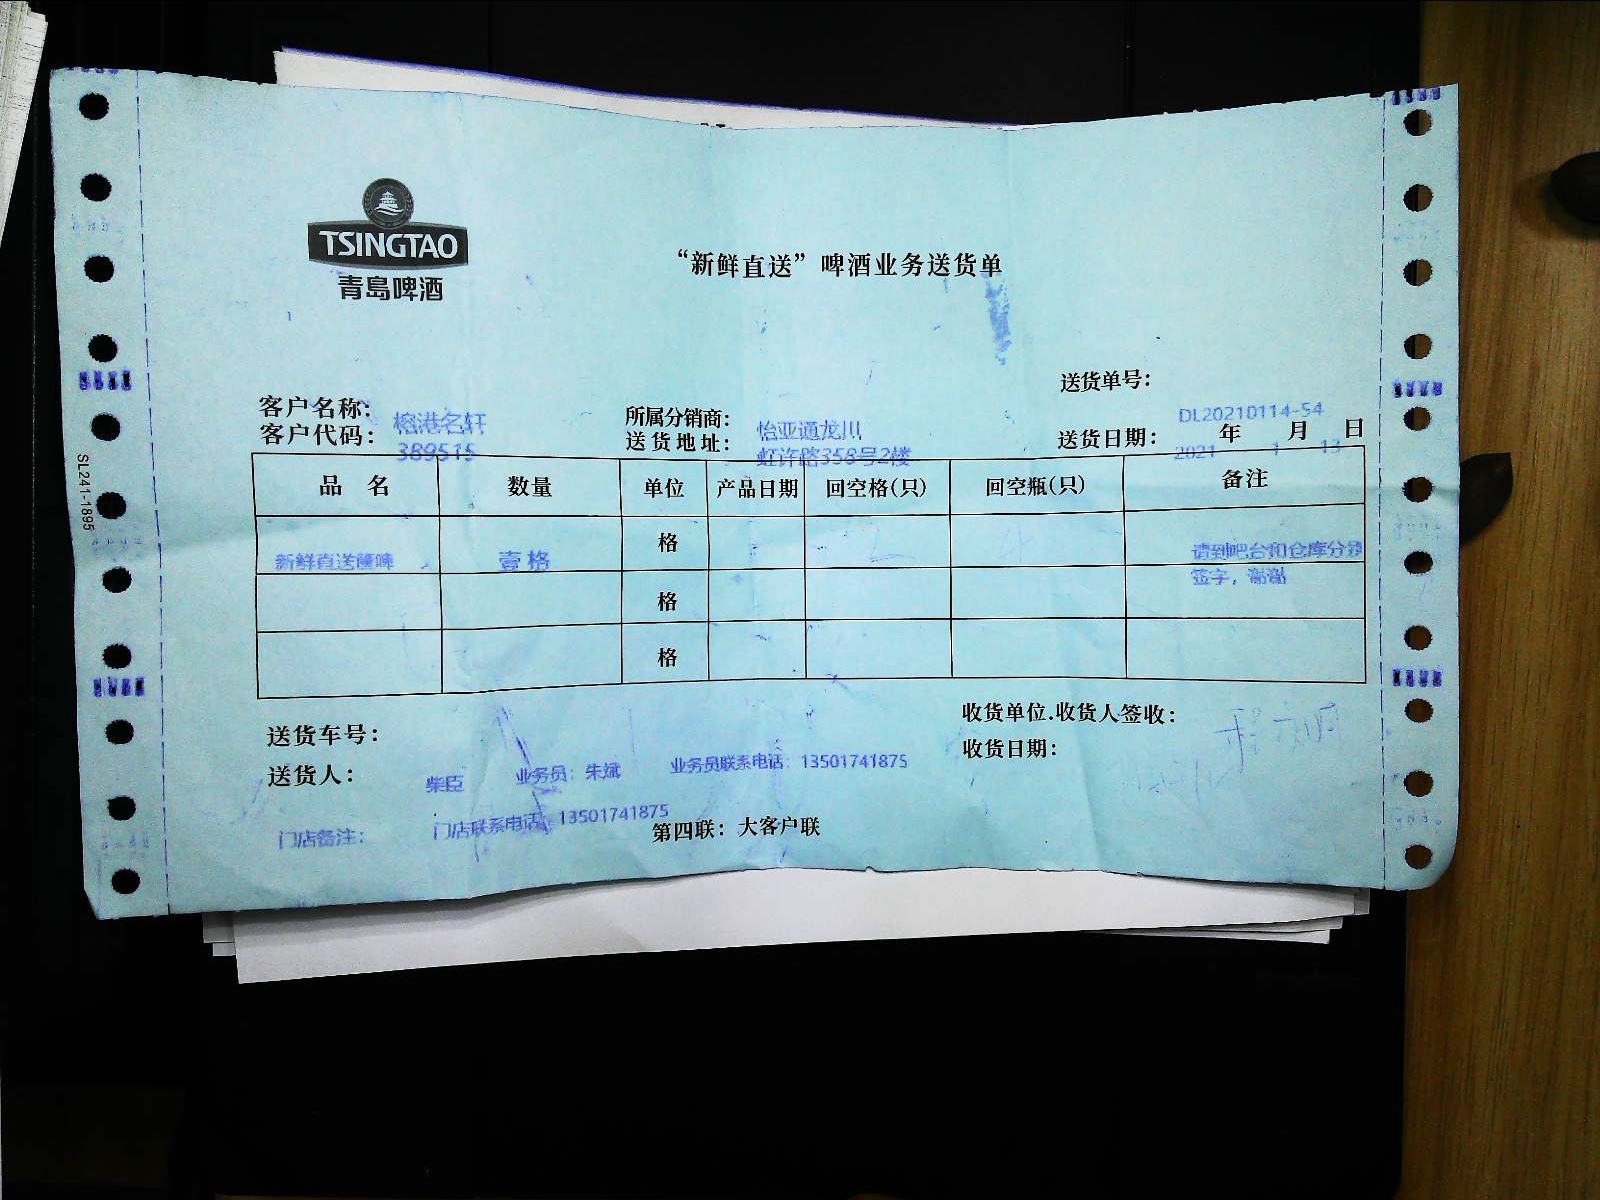 TSINGTAO
青岛啤酒
“新鲜直送”啤酒业务送货单
送货单号：DL20210114-54
客户名称：榕港名轩
所属分销商：怡亚通龙川
客户代码：389515
送货地址：虹许路358号2楼
送货日期：2021年1月13日
品 名 数量 单位 产品日期 回空格(只) 回空瓶(只) 备注
新鲜直送 壹格 格 请到吧台和仓库分别签字，谢谢
格
格
送货车号：
收货单位.收货人签收：
收货日期：
送货人：柴臣 业务员：朱斌 业务员联系电话：13501741875
门店备注： 门店联系电话 13501741875
第四联：大客户联
SL241-1895